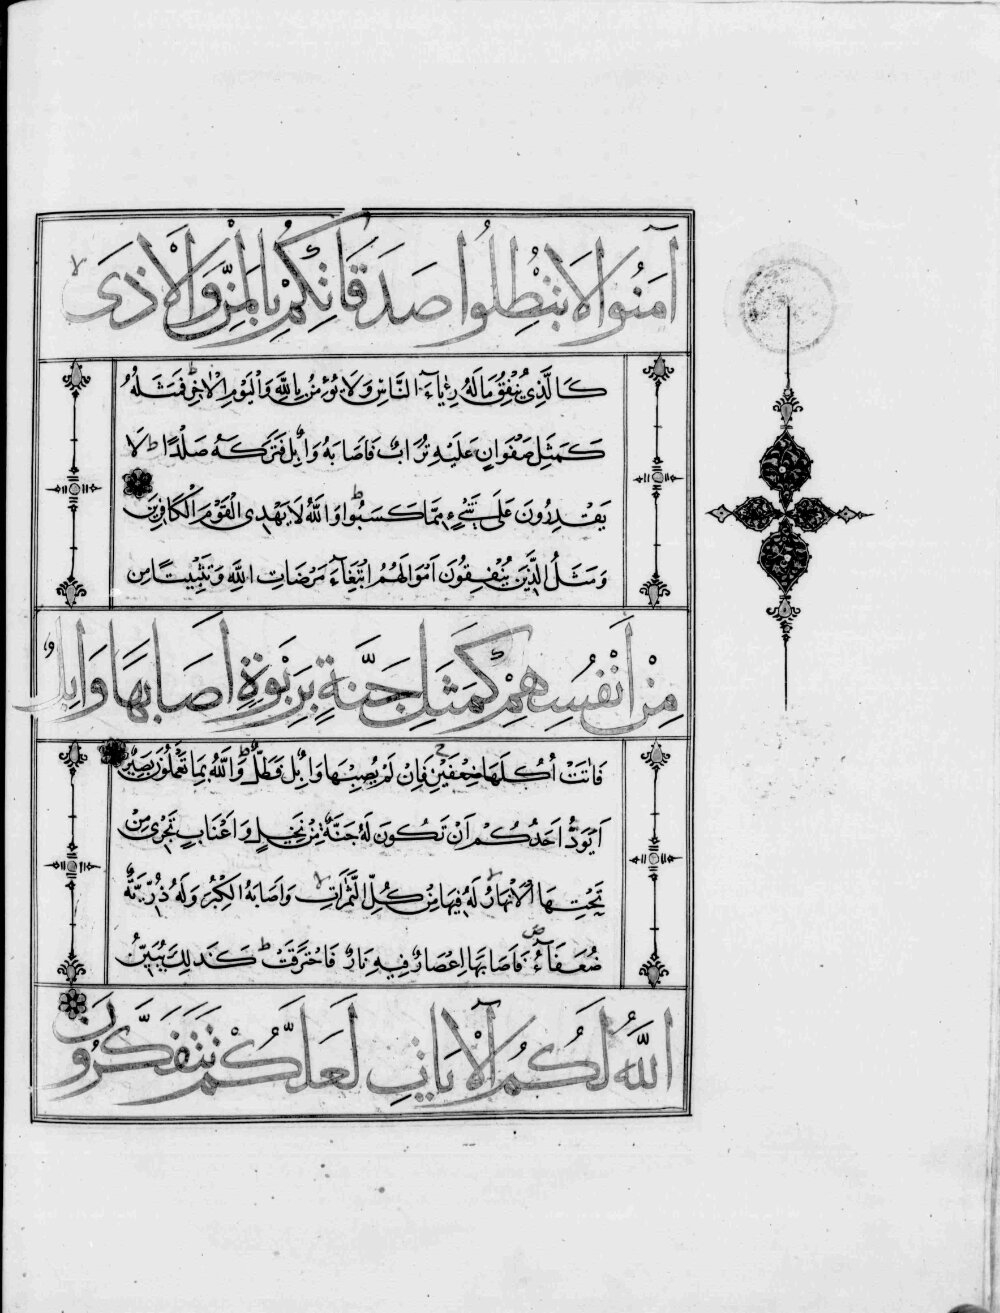 آمَنُوا لَا تُبْطِلُوا صَدَقَاتِكُمْ بِالْمَنِّ وَالْأَذَىٰ
كَالَّذِي يُنْفِقُ مَالَهُ رِيَاءَ النَّاسِ وَلَا يُؤْمِنُ بِاللَّهِ وَالْيَوْمِ الْآخِرِ فَمَثَلُهُ
كَمَثَلِ صَفْوَانٍ عَلَيْهِ تُرَابٌ فَأَصَابَهُ وَابِلٌ فَتَرَكَهُ صَلْدًا ط لَا
يَقْدِرُونَ عَلَىٰ شَيْءٍ مِمَّا كَسَبُوا ط وَاللَّهُ لَا يَهْدِي الْقَوْمَ الْكَافِرِينَ
وَمَثَلُ الَّذِينَ يُنْفِقُونَ أَمْوَالَهُمُ ابْتِغَاءَ مَرْضَاتِ اللَّهِ وَتَثْبِيتًا مِن
مِنْ أَنْفُسِهِمْ كَمَثَلِ جَنَّةٍ بِرَبْوَةٍ أَصَابَهَا وَابِلٌ
فَآتَتْ أُكُلَهَا ضِعْفَيْنِ ج فَإِنْ لَمْ يُصِبْهَا وَابِلٌ فَطَلٌّ ط وَاللَّهُ بِمَا تَعْمَلُونَ بَصِيرٌ
أَيَوَدُّ أَحَدُكُمْ أَنْ تَكُونَ لَهُ جَنَّةٌ مِنْ نَخِيلٍ وَأَعْنَابٍ تَجْرِي مِنْ
تَحْتِهَا الْأَنْهَارُ لا لَهُ فِيهَا مِنْ كُلِّ الثَّمَرَاتِ لا وَأَصَابَهُ الْكِبَرُ وَلَهُ ذُرِّيَّةٌ
ضُعَفَاءُ ص فَأَصَابَهَا إِعْصَارٌ فِيهِ نَارٌ فَاحْتَرَقَتْ ط كَذَٰلِكَ يُبَيِّنُ
اللَّهُ لَكُمُ الْآيَاتِ لَعَلَّكُمْ تَتَفَكَّرُونَ